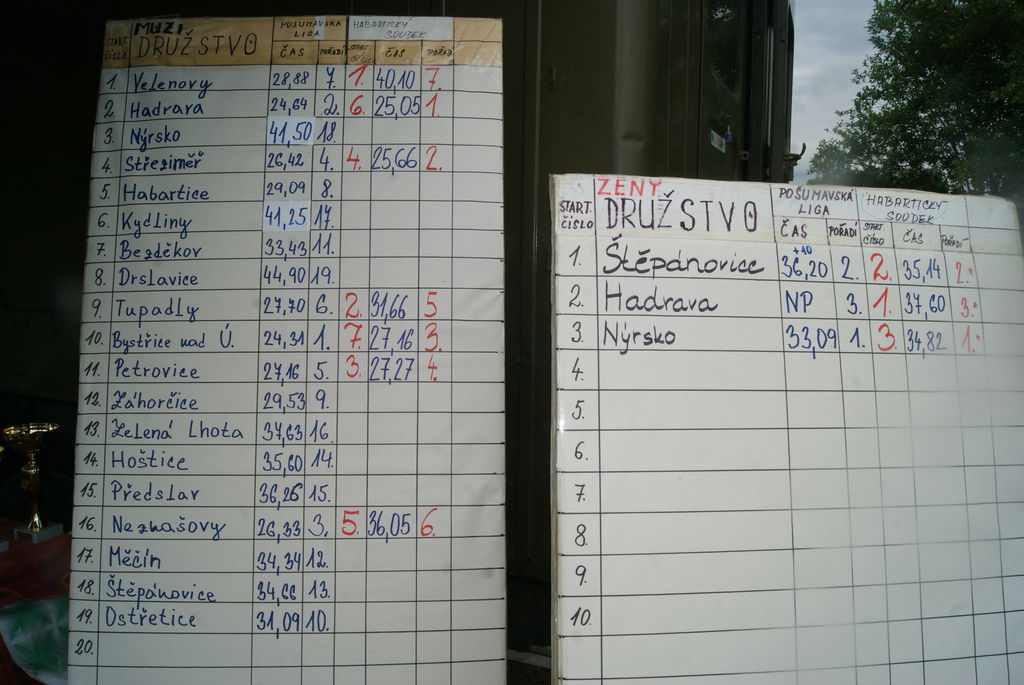 MUZI
START. ČÍSLO DRUŽSTVO POŠUMAVSKÁ LIGA HABARTICKÝ SOUDEK
ČAS POŘADÍ START. ČÍSLO ČAS POŘADÍ
1. Velenovy 28,88 7. 1. 40,10 7.
2. Hadrava 24,64 2. 6. 25,05 1.
3. Nýrsko 41,50 18.
4. Střeziměř 26,42 4. 4. 25,66 2.
5. Habartice 29,09 8.
6. Kydliny 41,25 17.
7. Bezděkov 33,43 11.
8. Drslavice 44,90 19.
9. Tupadly 27,70 6. 2. 31,66 5
10. Bystřice nad Ú. 24,31 1. 7. 27,16 3.
11. Petrovice 27,16 5. 3. 27,27 4.
12. Záhorčice 29,53 9.
13. Zelená Lhota 37,63 16.
14. Hoštice 35,60 14.
15. Předslav 36,26 15.
16. Neznašovy 26,33 3. 5. 36,05 6.
17. Měčín 34,34 12.
18. Štěpánovice 34,66 13.
19. Ostřetice 31,09 10.
20.
ZENY
START. ČÍSLO DRUŽSTVO POŠUMAVSKÁ LIGA HABARTICKÝ SOUDEK
ČAS POŘADÍ START. ČÍSLO ČAS POŘADÍ
+10
1. Štěpánovice 36,20 2. 2. 35,14 2.
2. Hadrava NP 3. 1. 37,60 3.
3. Nýrsko 33,09 1. 3. 34,82 1.
4.
5.
6.
7.
8.
9.
10.